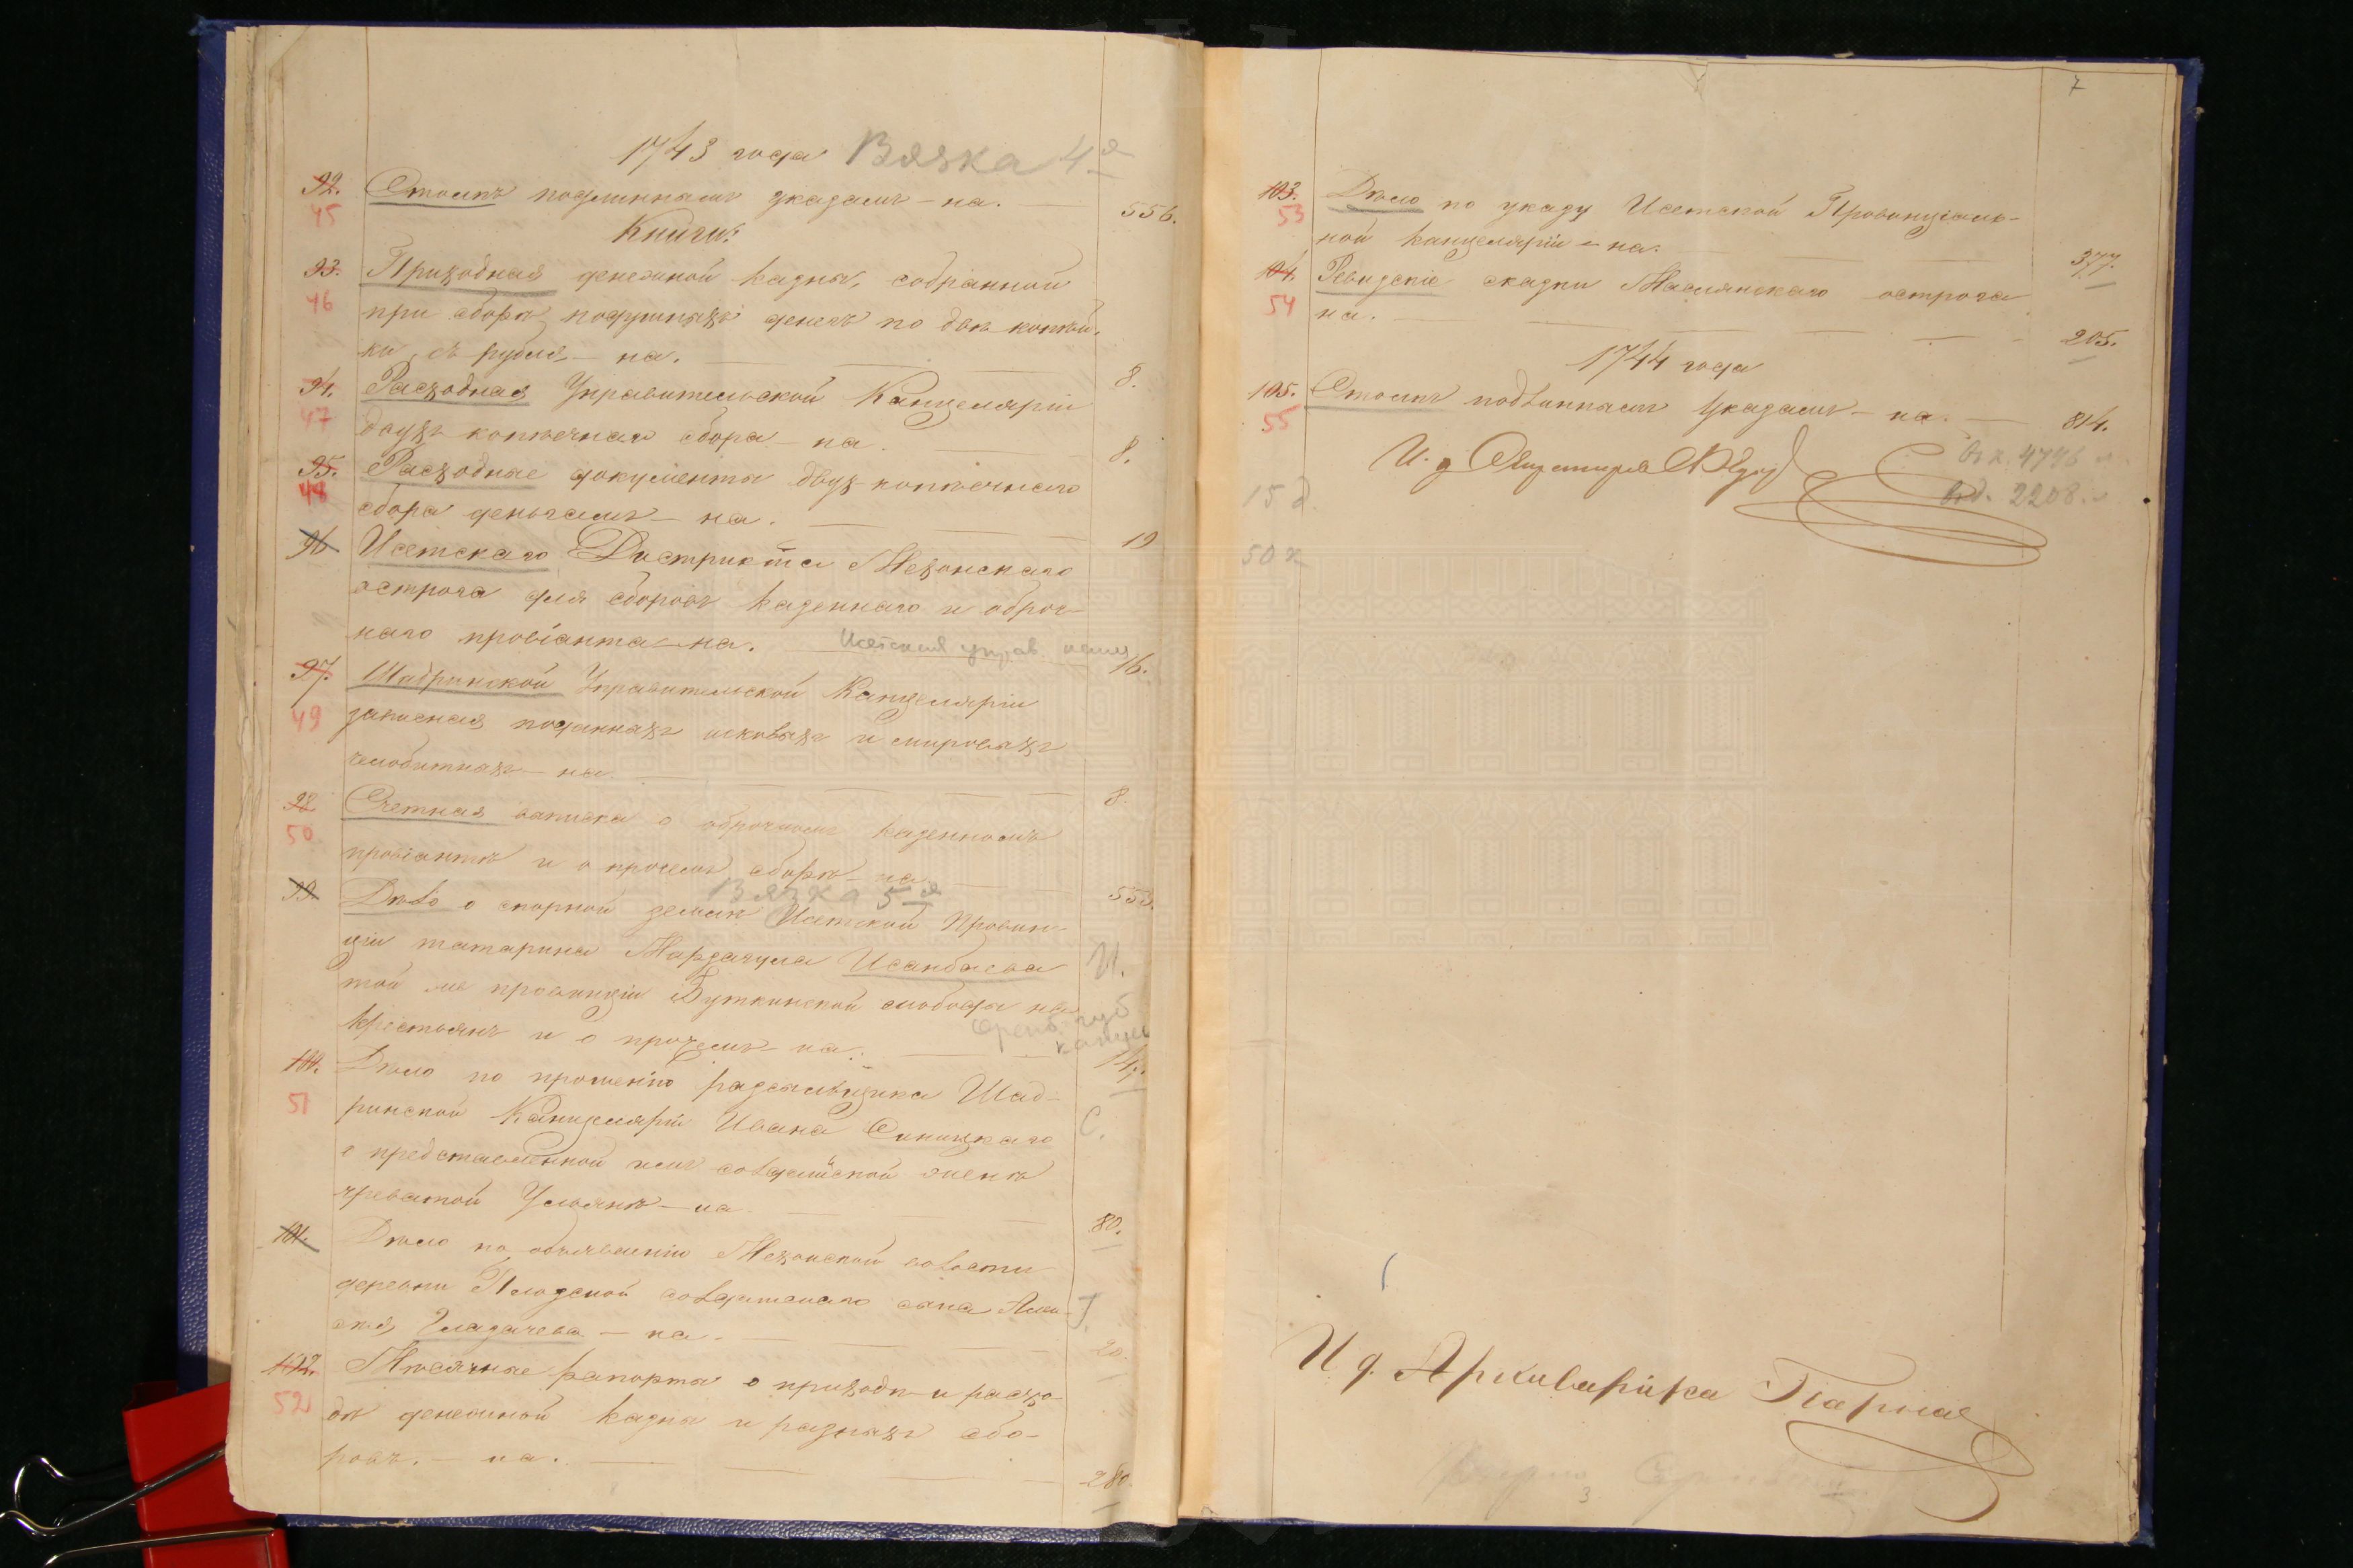 1743 года Вязка 4я
92. Столпъ подлиннымъ указамъ — на. 556.
45
Книги:
93. Приходная денежной казны, собранной
46 при сборѣ подушныхъ денегъ по двѣ копѣй-
ки съ рубля — на. 8.
94. Расходная Управительской Канцеляріи
47 двухъ копѣечнаго сбора — на. 8.
95. Расходные документы двухъ копѣечнаго
48 сбора деньгамъ — на. 19
96 Исетскаго Дистрикта Мехонскаго
острога для сборовъ казеннаго и оброч-
наго провіанта — на. Исетская управ. канц 16.
97. Шадринской Управительской Канцеляріи
49 записная поданныхъ исковыхъ и мировыхъ
челобитныхъ — на. 8.
98 Счетная выписка о оброчномъ казенномъ
50 провіантѣ и о прочемъ сборѣ — на 553.
Вязка 5я
99 Дѣло о спорной землѣ Исетской Провин-
ціи татарина Мардагула Исанбаева И.
той же провинціи Буткинской слободы на
крестьянъ и о прочемъ — на. Оренб. губ канцел 14.
100. Дѣло по прошенію разсыльщика Шад-
51 ринской Канцеляріи Ивана Синицкаго С.
о представленной имъ солдатской женкѣ
чреватой Ульянѣ — на 80.
101. Дѣло по объявленію Мехонской волости
деревни солдатскаго сына Алек-
сѣя Гладачева — на. 20.
102. Мѣсячные рапорты о приходѣ и расхо-
52 дѣ денежной казны и разныхъ сбо-
ровъ. — на. 280.
7
103. Дѣло по указу Исетской Провинціаль-
53 ной канцеляріи — на. 377.
104. Ревизскіе сказки Маслянскаго острога
54 на. 205.
1744 года
105. Столпъ подлиннымъ Указамъ — на. 814.
55
И. д.
вх. 4746
15 д. вхд. 2208.
50 к
И д. Архиваріуса
3